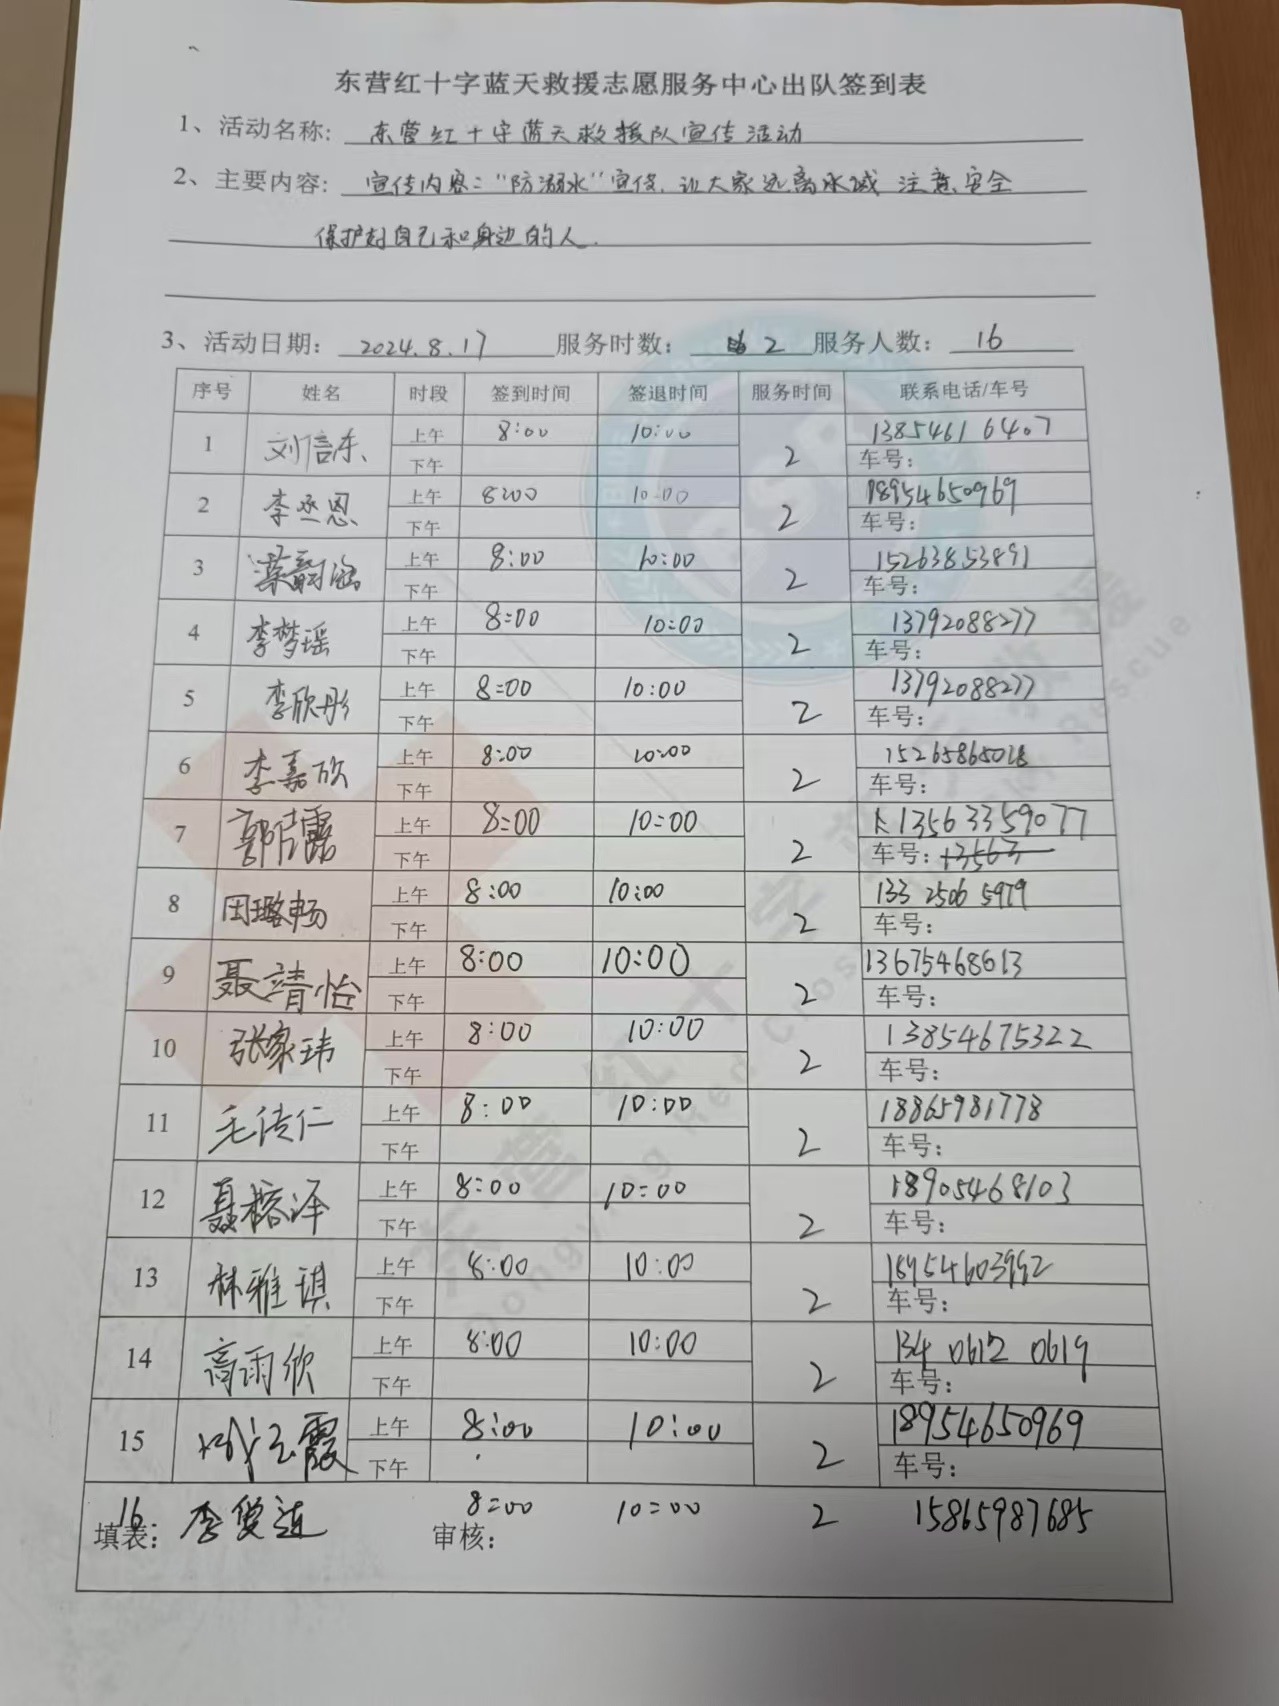 东营红十字蓝天救援志愿服务中心出队签到表
1、活动名称: 东营红十字蓝天救援队宣传活动
2、主要内容: 宣传内容:"防溺水"宣传,让大家远离水域 注意安全
保护好自己和身边的人.
3、活动日期: 2024.8.17 服务时数: 2 服务人数: 16
序号 姓名 时段 签到时间 签退时间 服务时间 联系电话/车号
1 刘信东 上午 8:00 10:00 2 13854616407
下午 车号:
2 李丞恩 上午 8:00 10:00 2 18954650969
下午 车号:
3 上午 8:00 10:00 2 15263853891
下午 车号:
4 李梦瑶 上午 8:00 10:00 2 13792088277
下午 车号:
5 李欣彤 上午 8:00 10:00 2 13792088277
下午 车号:
6 李嘉欣 上午 8:00 10:00 2 15265865018
下午 车号:
7 上午 8:00 10:00 2 13563359077
下午 车号: 13563
8 田璐畅 上午 8:00 10:00 2 133 2506 5979
下午 车号:
9 聂靖怡 上午 8:00 10:00 2 13675468613
下午 车号:
10 张家玮 上午 8:00 10:00 2 13854675322
下午 车号:
11 毛传仁 上午 8:00 10:00 2 18865981778
下午 车号:
12 聂榕泽 上午 8:00 10:00 2 18905468103
下午 车号:
13 林雅琪 上午 8:00 10:00 2 18954603992
下午 车号:
14 高雨欣 上午 8:00 10:00 2 134 0612 0619
下午 车号:
15 上午 8:00 10:00 2 18954650969
下午 车号:
16 李俊连 8:00 10:00 2 15865987685
填表: 审核:
东营红十字蓝天救援
Dongying Red Cross Rescue